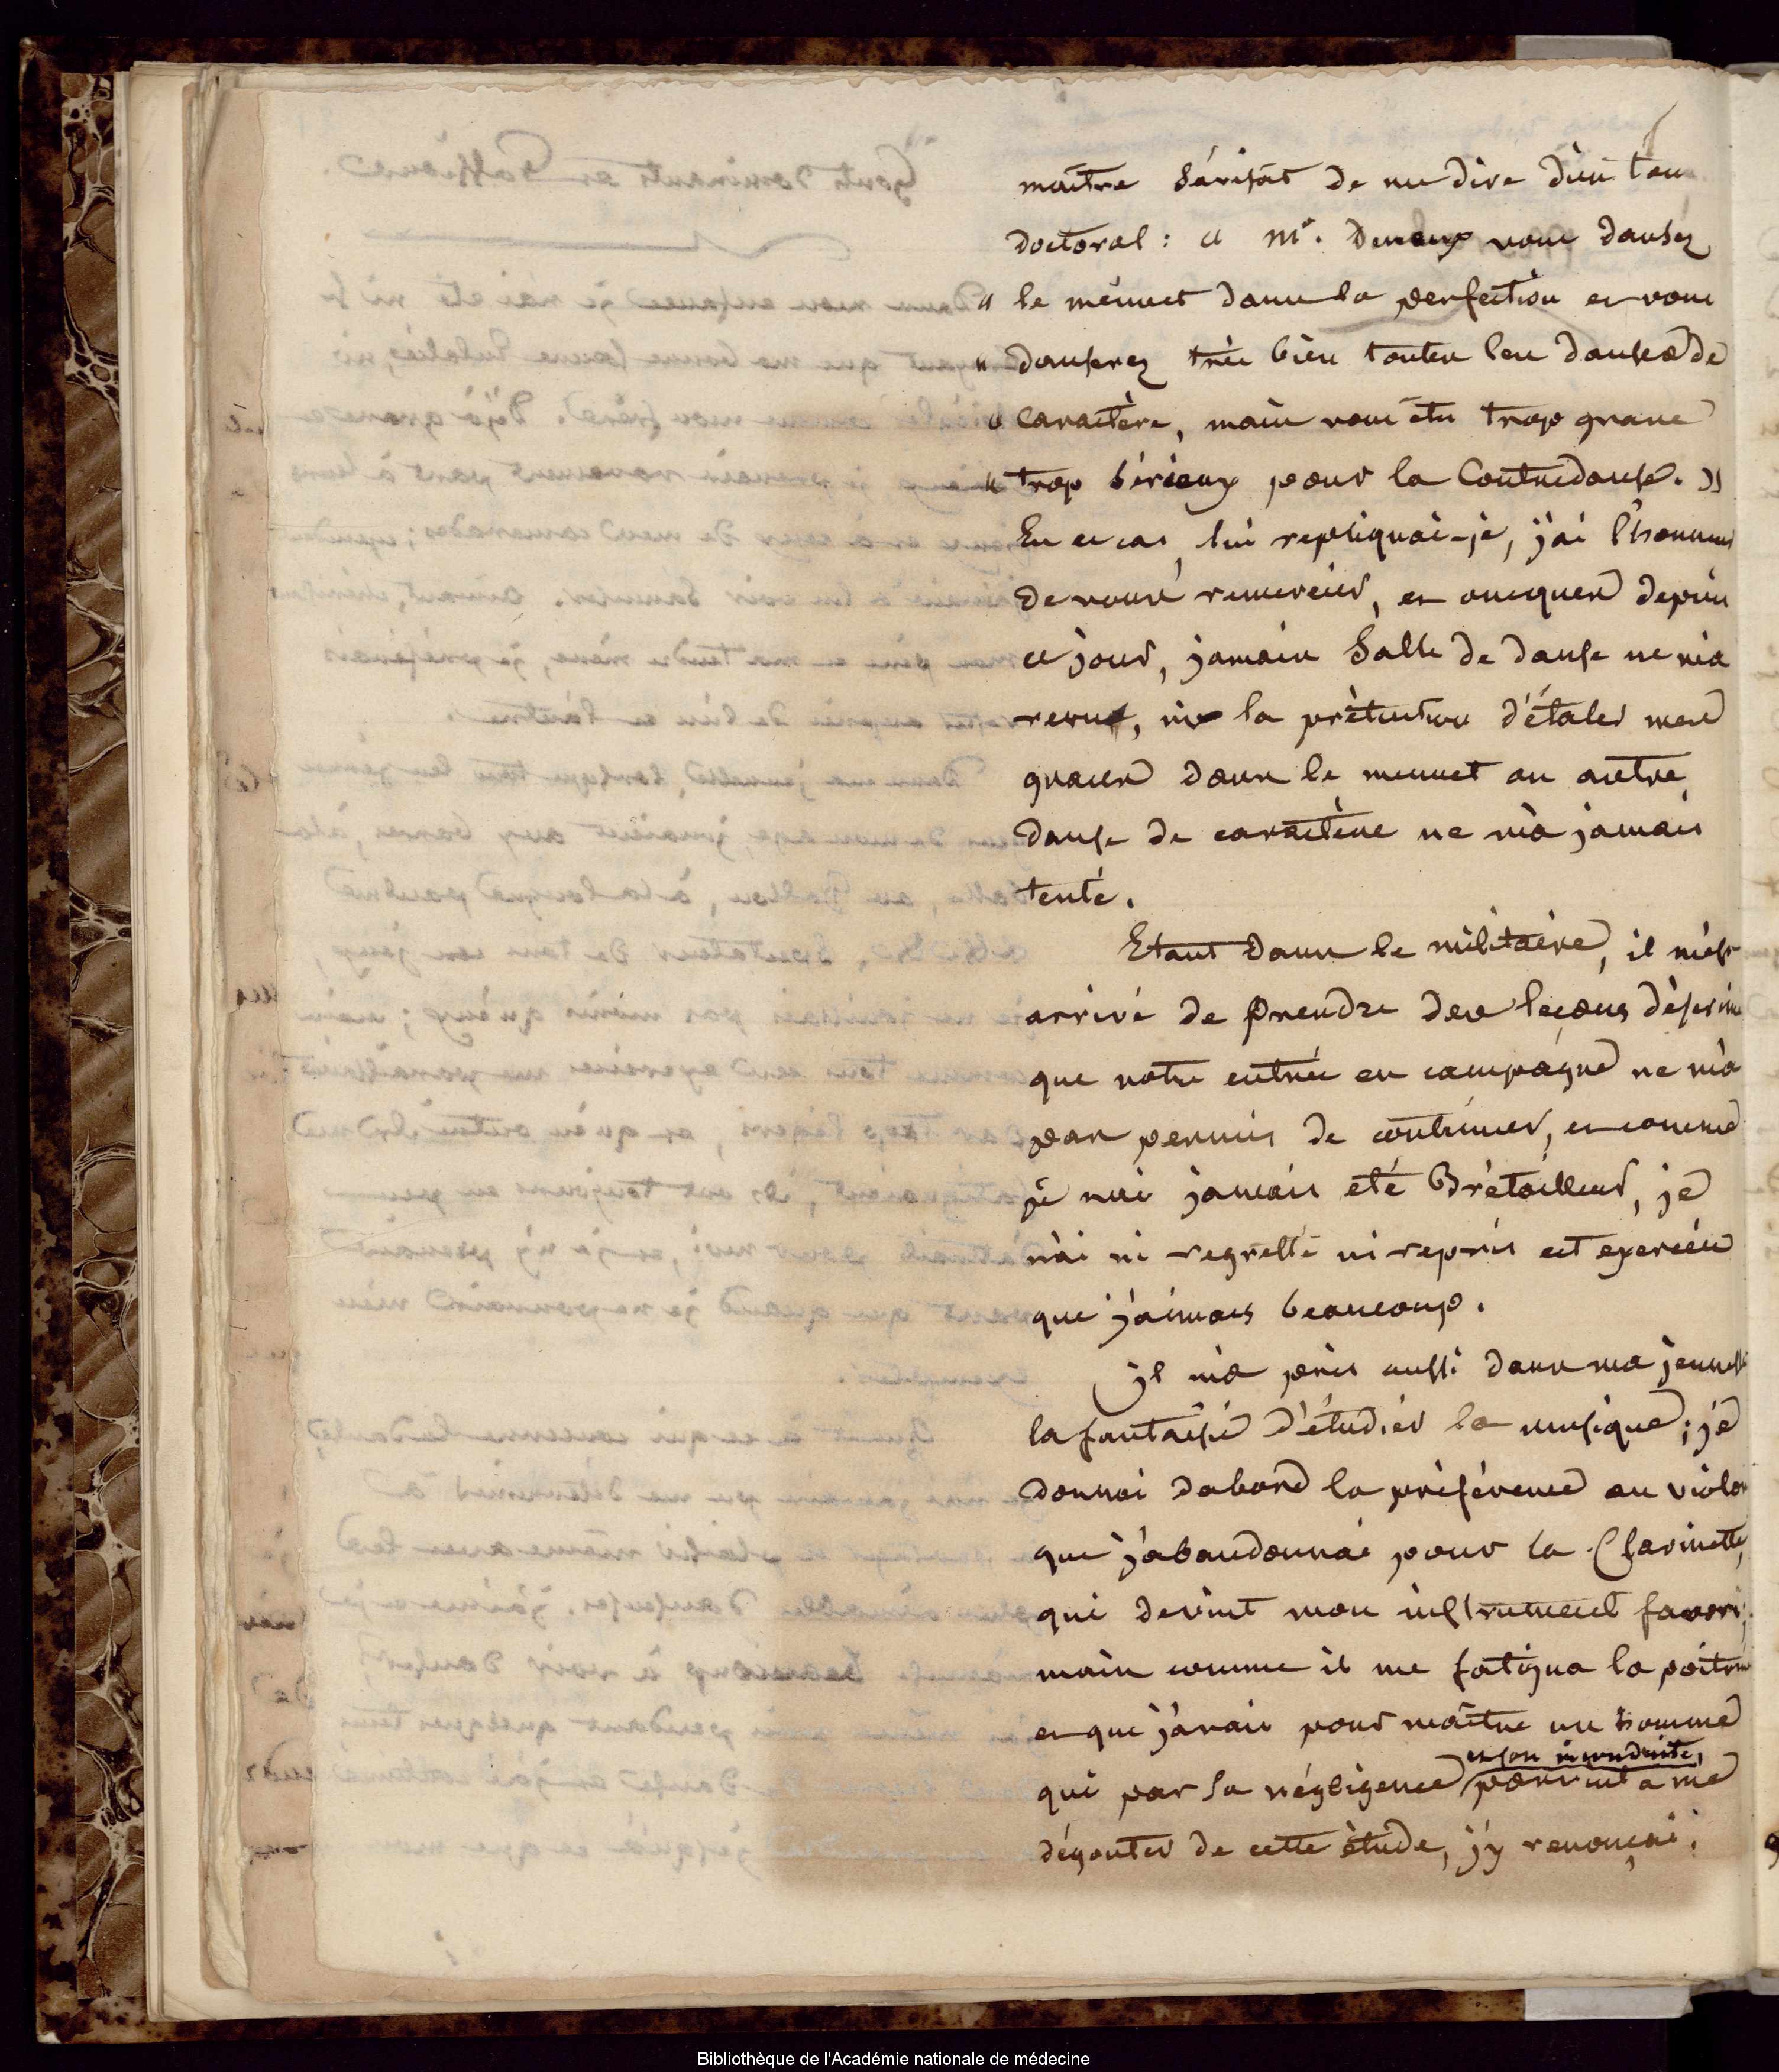 maitre s'avisat de me dire d'un ton
doctoral : « Mr. vous dansez
« le ménuet dans la perfection et vous
« danserez très bien toutes les danses de
« Caractère, mais vous êtes trop grave
« trop sérieux pour la Contredanse. »
En ce cas, lui repliquai-je, j'ai l'honneur
de vous remercier, et oncques depuis
ce jour, jamais Salle de danse ne m'a
revu, ni la prétention d'étaler mes
graces dans le menuet ou autre
danse de caractère ne m'a jamais
tenté.
Etant dans le militaire, il m'est
arrivé de prendre des leçons d'escrime
que notre entrée en campagne ne m'a
pas permis de continuer, et comme
je n'ai jamais eté Brétailleur, je
n'ai ni regretté ni repris cet exercice
que j'aimais beaucoup.
Il m'a pris aussi dans ma jeunesse
la fantaisie d'étudier la musique ; je
donnai dabord la préférence au violon
que j'abandonnai pour la Clarinette,
qui devint mon instrument favori ;
mais comme il me fatigua la poitrine
et que j'avais pour maitre un homme
et son inconduite,
qui par sa négligence parvint à me
dégouter de cette étude, j'y renonçai ;
Bibliothèque de l'Académie nationale de médecine